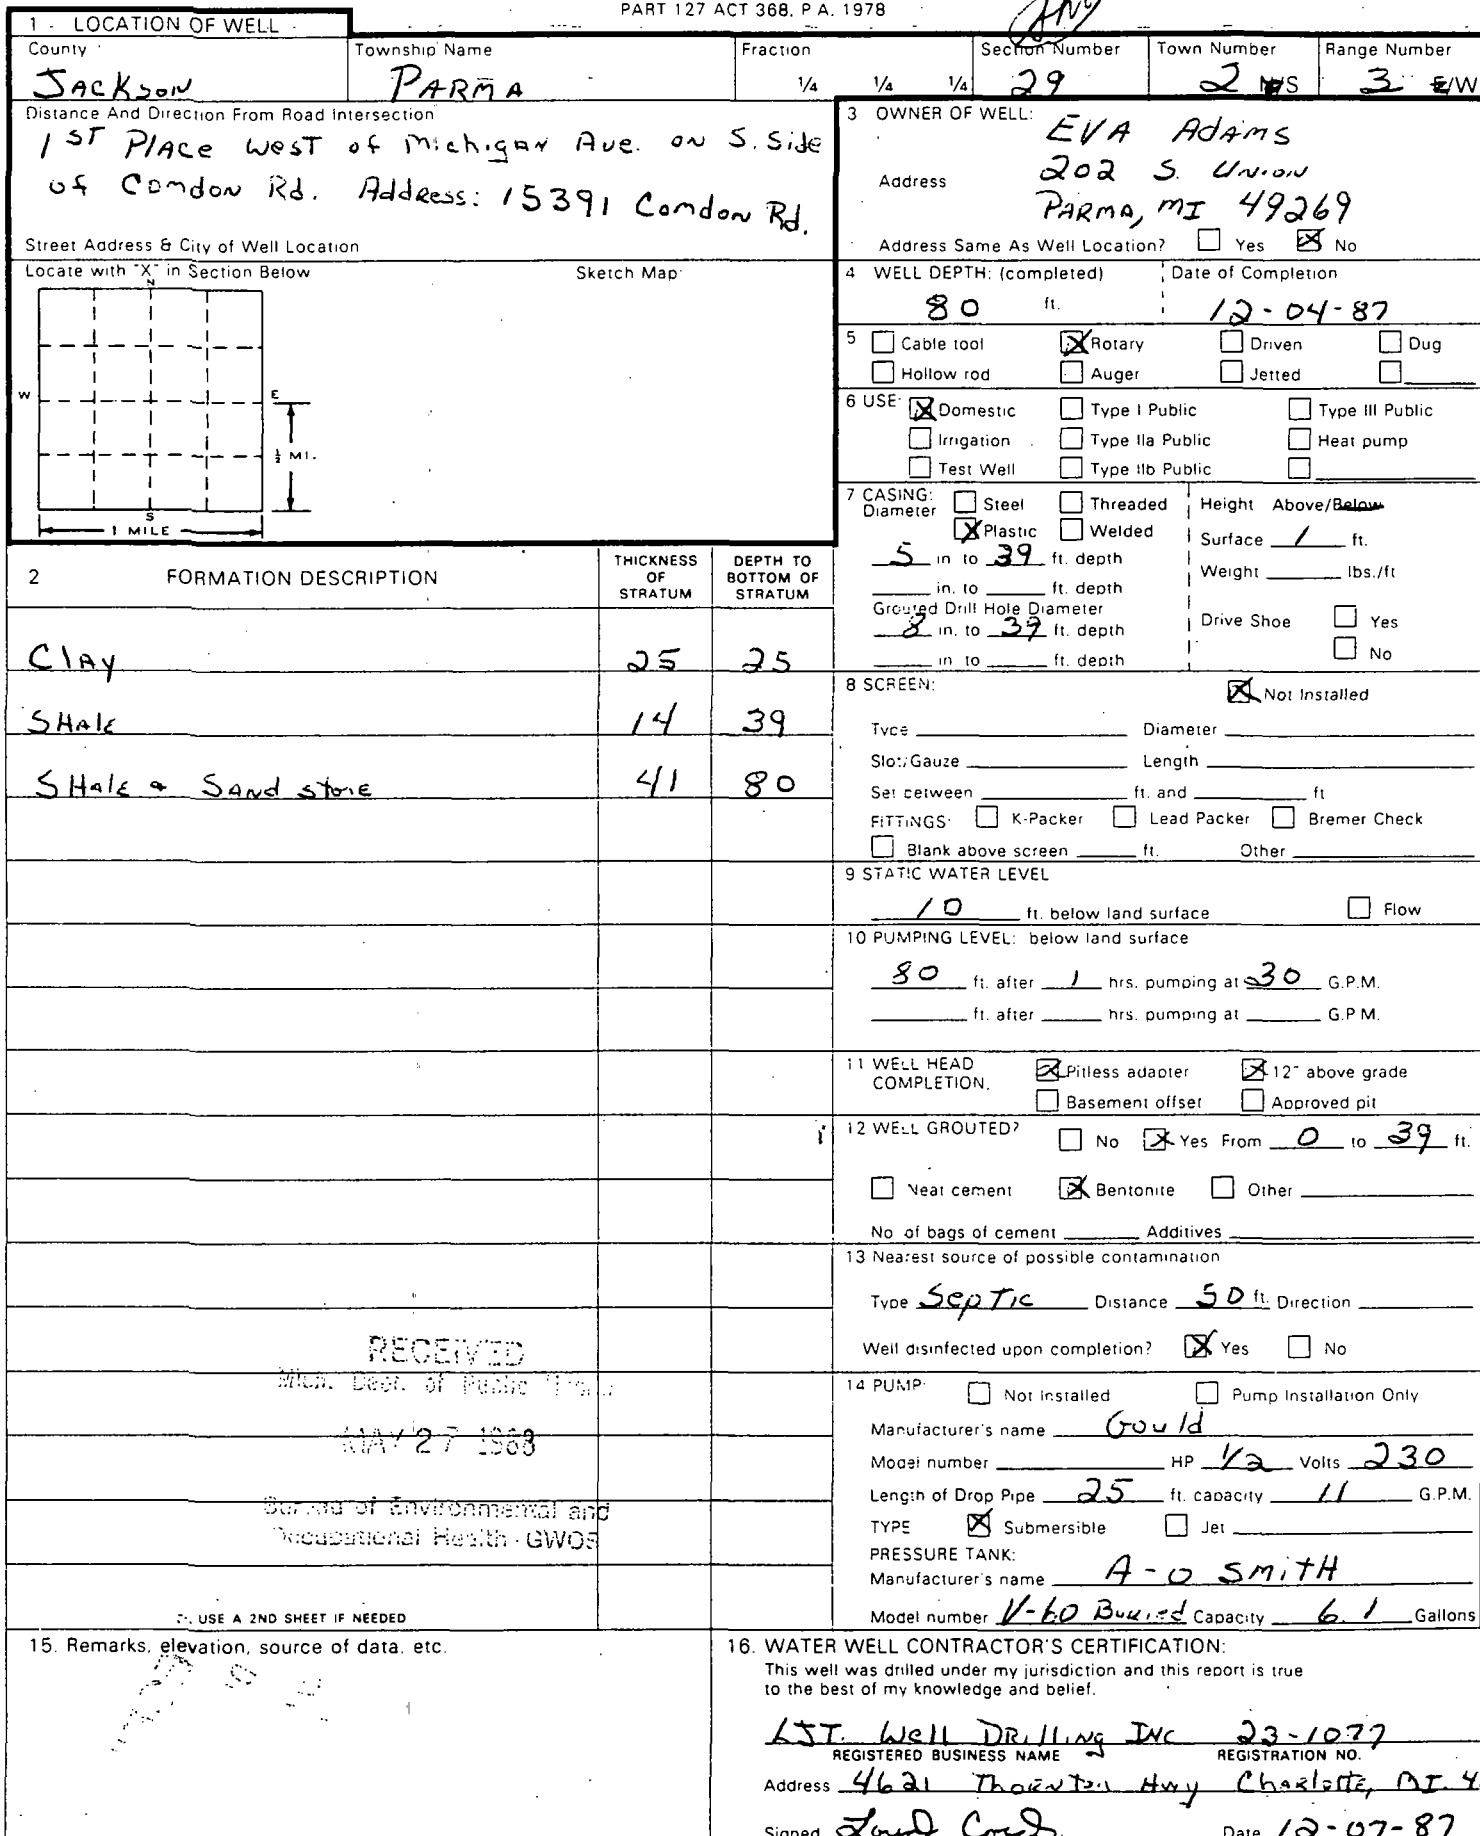 PART 127 ACT 368, P.A. 1978
1 - LOCATION OF WELL
County
Township Name
Fraction
Section Number
Town Number
Range Number
JACKSON
PARMA
1/4 1/4 1/4
29
2 N/S
3 E/W
Distance And Direction From Road Intersection
1ST PLACE WEST of Michigan Ave. on S. Side
of Comdon Rd. Address: 15391 Comdon Rd.
Street Address & City of Well Location
Locate with "X" in Section Below
Sketch Map:
N
W
E
S
1/2 MI.
1 MILE
3 OWNER OF WELL:
EVA ADAMS
Address
202 S. UNION
PARMA, MI 49269
Address Same As Well Location? Yes No
4 WELL DEPTH: (completed) Date of Completion
80 ft. 12-04-87
5 Cable tool Rotary Driven Dug
Hollow rod Auger Jetted
6 USE: Domestic Type I Public Type III Public
Irrigation Type IIa Public Heat pump
Test Well Type IIb Public
7 CASING: Steel Threaded Height Above/Below
Diameter
Plastic Welded
Surface 1 ft.
5 in to 39 ft. depth
Weight lbs./ft
in. to ft. depth
Grouted Drill Hole Diameter
Drive Shoe Yes
8 in. to 39 ft. depth
No
in. to ft. depth
2 FORMATION DESCRIPTION
THICKNESS OF STRATUM
DEPTH TO BOTTOM OF STRATUM
Clay 25 25
SHale 14 39
SHale & Sand stone 41 80
8 SCREEN: Not Installed
Type Diameter
Slot/Gauze Length
Set between ft. and ft
FITTINGS: K-Packer Lead Packer Bremer Check
Blank above screen ft. Other
9 STATIC WATER LEVEL
10 ft. below land surface Flow
10 PUMPING LEVEL: below land surface
80 ft. after 1 hrs. pumping at 30 G.P.M.
ft. after hrs. pumping at G.P.M.
11 WELL HEAD COMPLETION. Pitless adapter 12" above grade
Basement offset Approved pit
12 WELL GROUTED? No Yes From 0 to 39 ft.
Neat cement Bentonite Other
No. of bags of cement Additives
13 Nearest source of possible contamination
Type Septic Distance 50 ft. Direction
Well disinfected upon completion? Yes No
14 PUMP: Not Installed Pump Installation Only
Manufacturer's name Gould
Model number HP 1/2 Volts 230
Length of Drop Pipe 25 ft. capacity 11 G.P.M.
TYPE Submersible Jet
PRESSURE TANK:
Manufacturer's name A-O SMITH
Model number V-60 Buried Capacity 6.1 Gallons
RECEIVED
Mich. Dept. of Public
MAY 27 1988
Bureau of Environmental and
Occupational Health - GWQS
USE A 2ND SHEET IF NEEDED
15. Remarks, elevation, source of data, etc.
16. WATER WELL CONTRACTOR'S CERTIFICATION:
This well was drilled under my jurisdiction and this report is true
to the best of my knowledge and belief.
LJT. Well DRilling INC 23-1077
REGISTERED BUSINESS NAME REGISTRATION NO.
Address 4621 Thornton Hwy Charlotte, MI. 4
Signed Date 12-07-87